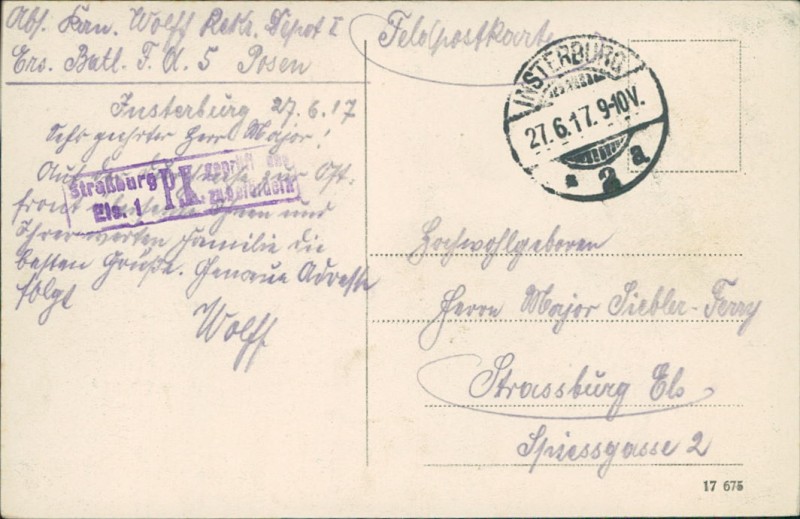 Abs. Kan. Wolff Rekr. Depot I
Ers. Batl. F. A. 5 Posen
Insterburg 27.6.17
Sehr geehrter Herr Major!
Auf der zur Ost-
front Ihnen und
Ihrer werten Familie die
besten Grüße. Genaue Adresse
folgt
Wolff
Straßburg
Els. 1
P.K.
geprüft und
zu befördern
Feldpostkarte
INSTERBURG
27.6.17.9-10V.
* 2 a
Hochwohlgeboren
Herrn Major Siebler-Ferry
Strassburg Els
Spiessgasse 2
17 675